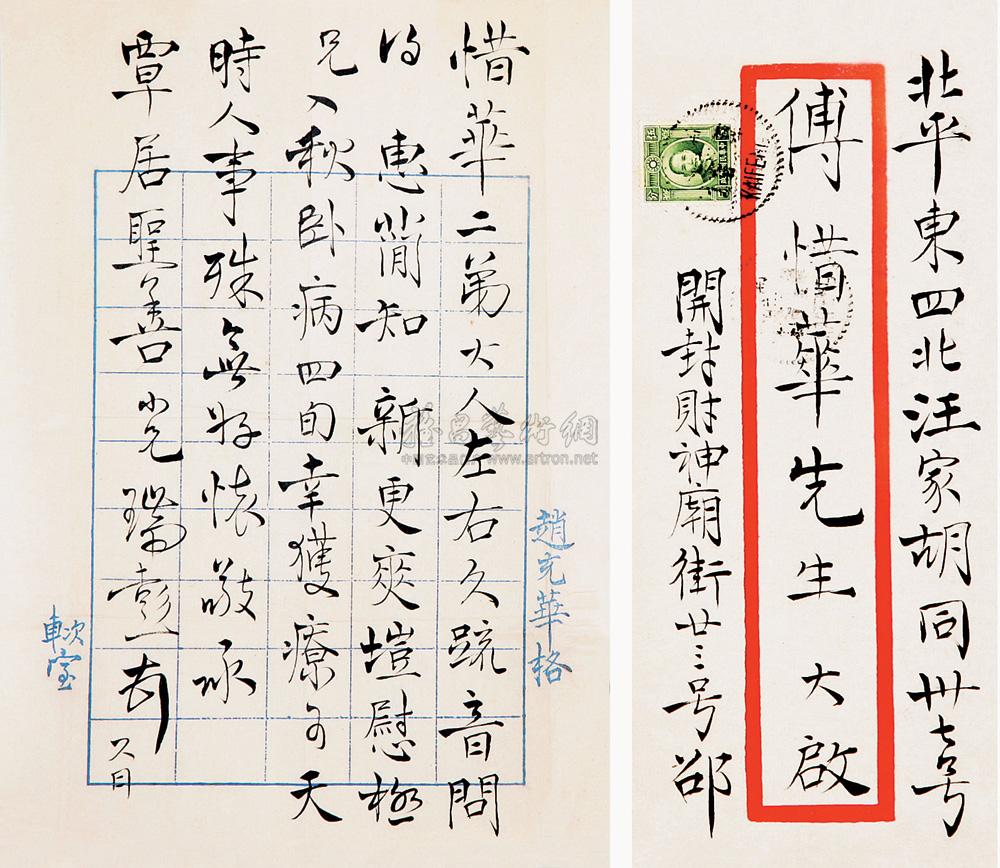 北平東四北汪家胡同卅七号
傅惜華先生大啟
開封財神廟街廿三号邵
KAIFEN
惜華二弟大人左右久疏音問
得惠簡知新更爽塏慰極
兄入秋臥病四旬幸獲療可天
時人事殊無好懷敬承
覃居聖善小兄瑞彭
趙充華格
雅昌藝術網
www.artron.net